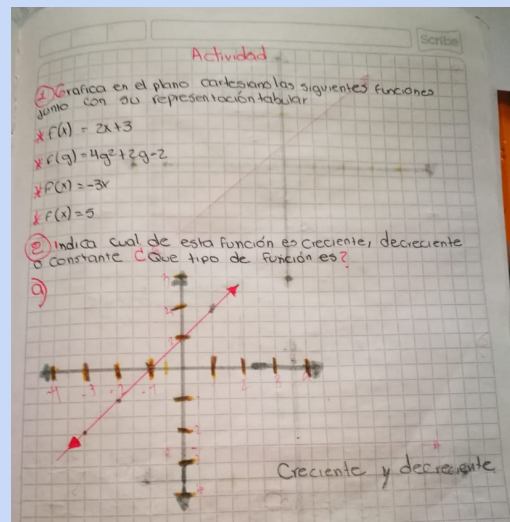 Scribe
Actividad
① Grafica en el plano cartesiano las siguientes funciones
junto con su representación tabular
* f(x) = 2x+3
* f(g) = 4g²+2g-2
* f(x) = -3x
* f(x) = 5
② Indica cual de esta función es creciente, decreciente
o constante ¿Que tipo de función es?
a)
-4 -3 -2 -1
Creciente y decreciente